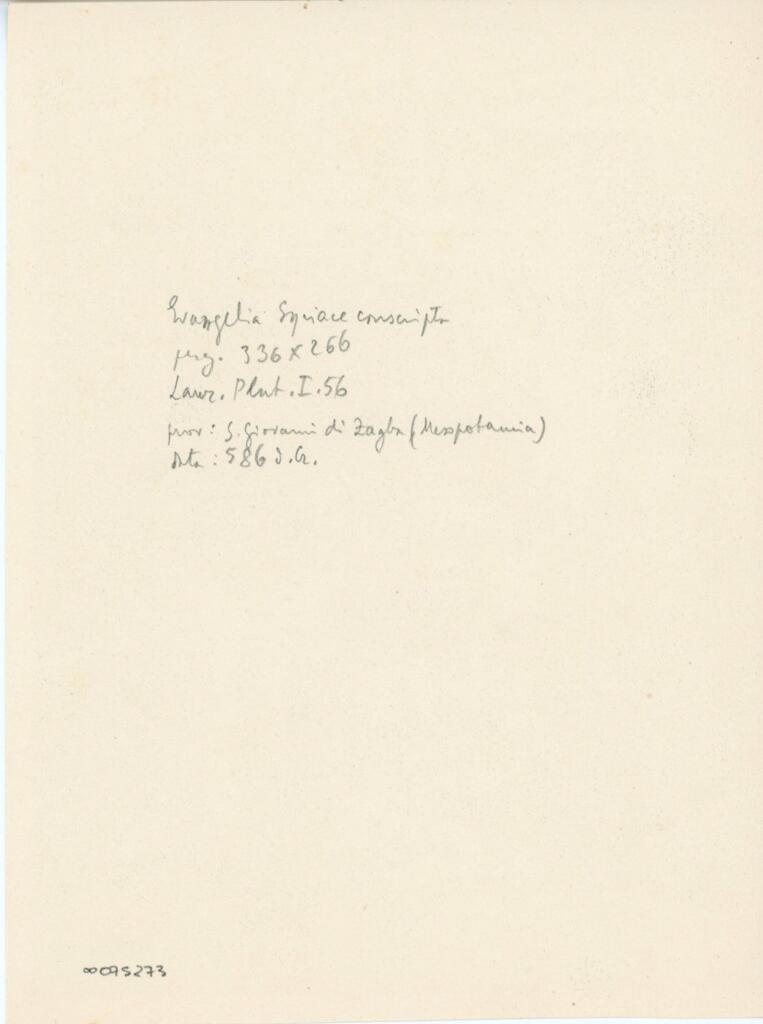 Evangelia Syriace conscripta
perg. 336 x 266
Laur. Plut. I. 56
prov: S. Giovanni di Zagba (Mesopotamia)
data: 586 d. Cr.
∞095273